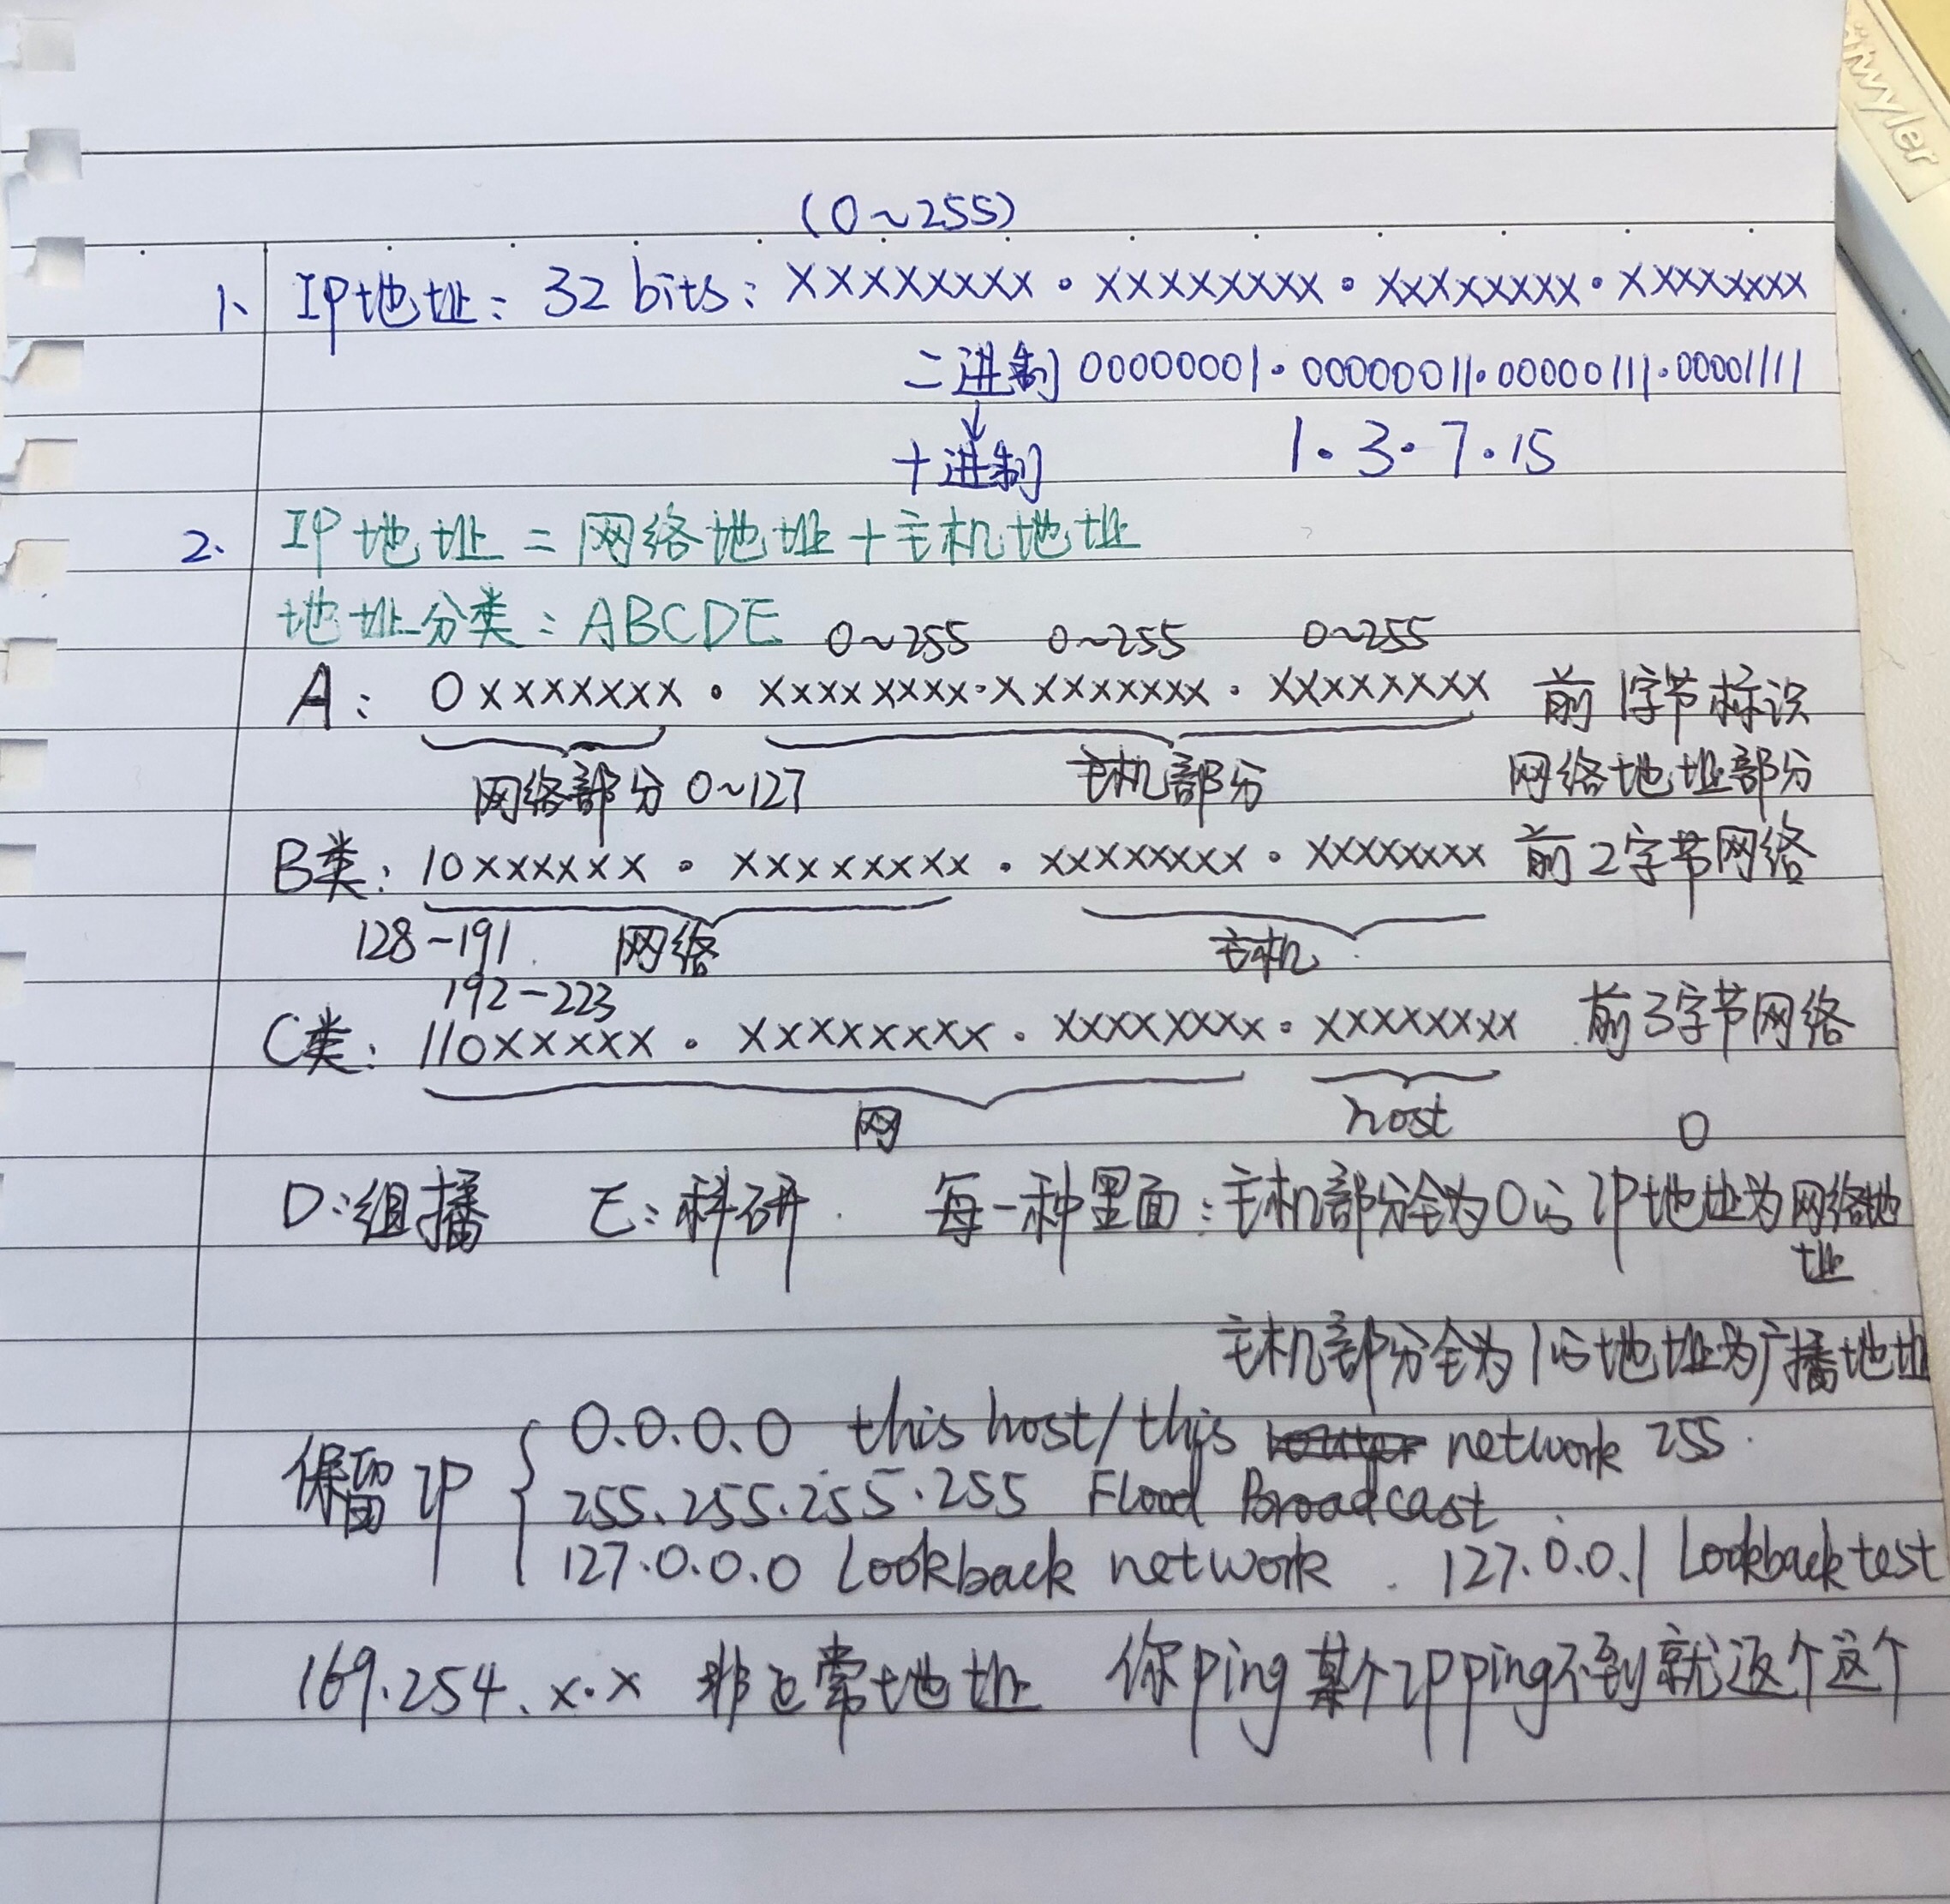 (0~255)
1、IP地址：32 bits：XXXXXXXX.XXXXXXXX.XXXXXXXX.XXXXXXXX
二进制 00000001.00000011.00000111.00001111
↓
十进制 1.3.7.15
2. IP地址=网络地址+主机地址
地址分类：ABCDE 0~255 0~255 0~255
A：0XXXXXXX.XXXXXXXX.XXXXXXXX.XXXXXXXX 前1字节标识
网络部分 0~127 主机部分 网络地址部分
B类：10XXXXXX.XXXXXXXX.XXXXXXXX.XXXXXXXX 前2字节网络
128-191 网络 主机
192-223
C类：110XXXXX.XXXXXXXX.XXXXXXXX.XXXXXXXX 前3字节网络
网 host 0
D：组播 E：科研. 每一种里面：主机部分全为0的IP地址为网络地
址
主机部分全为1的地址为广播地址
保留IP { 0.0.0.0 this host/this network 255.
255.255.255.255 Flood Broadcast
127.0.0.0 Lookback network. 127.0.0.1 Lookback test
169.254.x.x 非正常地址 你ping某个IP ping不到就返个这个